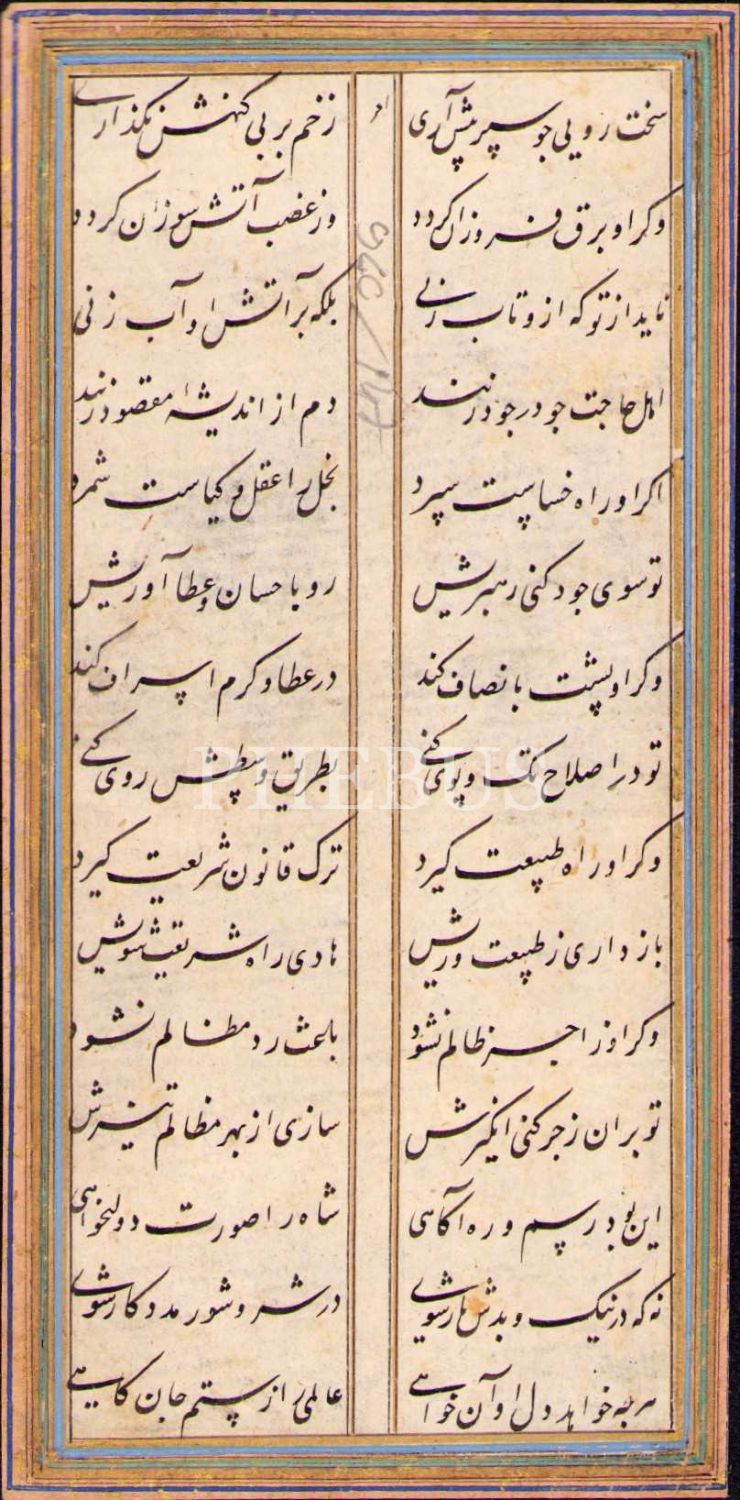 سخت رویی جو سپر پیش آری زخم بر بی کنهش نکذاری
وکر او برق فروزان کردد وز غضب آتش سوزان کردد
ناید از تو که ازو تاب زنی بلکه بر آتش او آب زنی
اهل حاجت جو در جود زنند دم از اندیشهٔ مقصود زنند
اکر او راه خساست سپرد بخل را عقل و کیاست شمرد
تو سوی جود کنی رهبریش رو باحسان و عطا آوریش
وکر او پشت بانصاف کند در عطا و کرم اسراف کند
تو در اصلاح تک و پوی کنی بطریق وسطش روی کنی
وکر او راه طبیعت کیرد ترک قانون شریعت کیرد
باز داری ز طبیعت وریش هادی راه شریعت شویش
وکر او زاجر ظالم نشود باعث رد مظالم نشود
تو بران زجر کنی انکیزش سازی از بهر مظالم تیزش
این بود رسم و ره آکاهی شاه را صورت دولتخواهی
نه که در نیک و بدش یار شوی در شر و شور مددکار شوی
هر چه خواهد دل او آن خواهی عالمی را ز ستم جان کاهی
PHEBUS